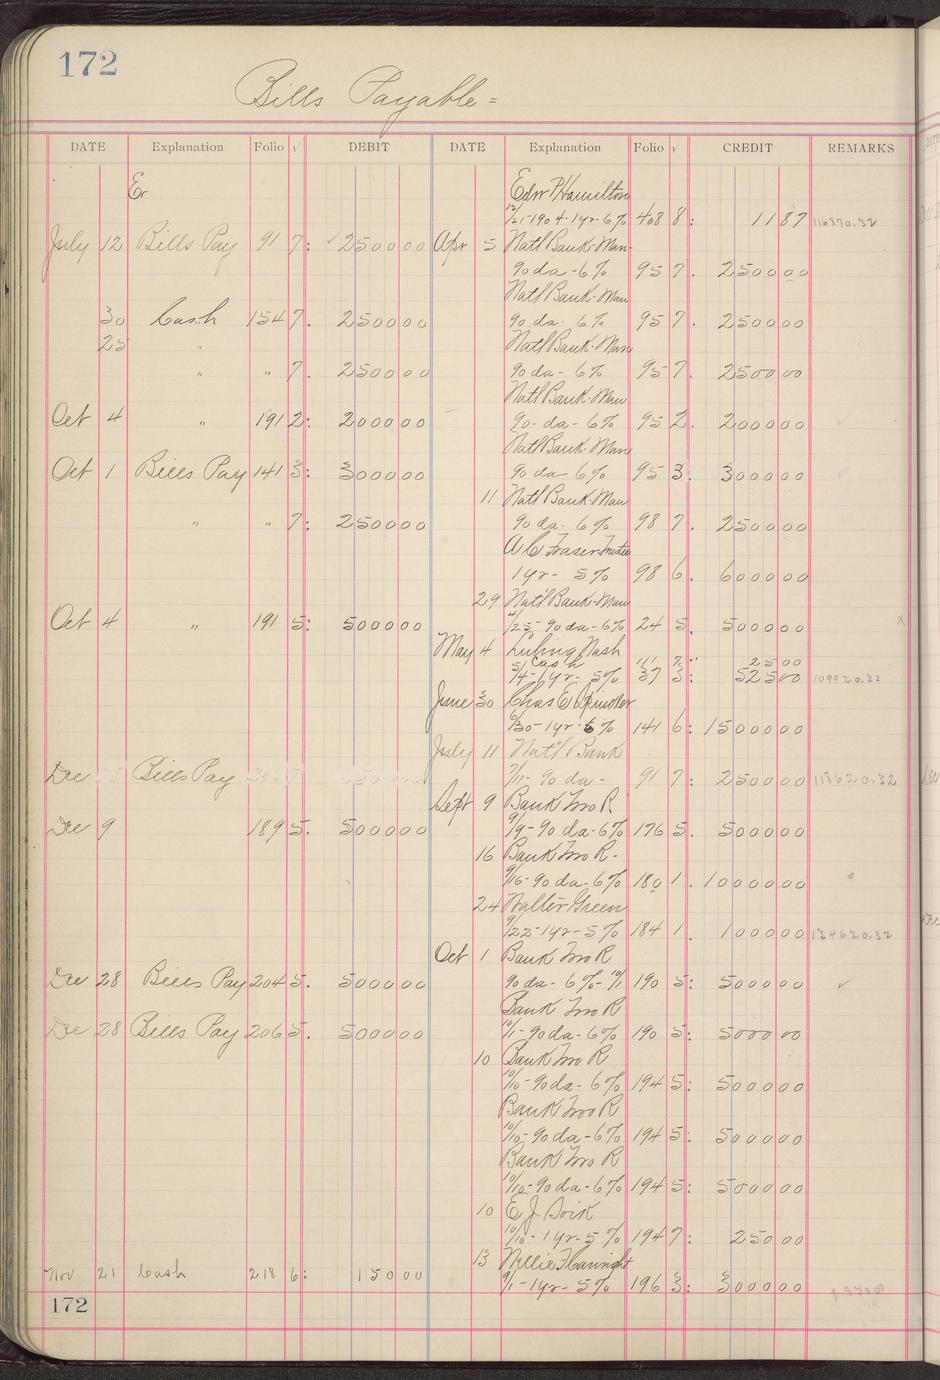 172
Bills Payable =
DATE Explanation Folio √ DEBIT DATE Explanation Folio √ CREDIT REMARKS
Edw P Hamilton
12/21-1904-1yr-6% 408 8: 1187 116370.32
July 12 Bills Pay 91 7: 250000 Apr 5 Natl Bank-Man
90 da-6% 95 7. 250000
Natl Bank-Man
30 Cash 154 7. 250000 90 da-6% 95 7. 250000
25 " Natl Bank-Man
" " 7. 250000 90 da-6% 95 7. 250000
Natl Bank-Man
Oct 4 " 191 2: 200000 90-da-6% 95 2. 200000
Natl Bank-Man
Oct 1 Bills Pay 141 3: 300000 90 da 6% 95 3. 300000
11 Natl Bank-Man
" " 7: 250000 90 da-6% 98 7. 250000
A C Fraser-Trustee
1yr- 5% 98 6. 600000
29 Nat'l Bank-Man
Oct 4 " 191 5: 500000 4/25-90 da-6% 24 5. 500000
May 4 Nash
Cash 2500
5/4-1yr-5% 37 3: 52500 109920.32
June 30 Chas E
6/30-1yr-6% 141 6: 1500000
July 11 Nat'l Bank
Dec 28 Bills Pay 206 7/11-90 da- 91 7: 250000 118620.32
Sept 9 Bank Two R
Dec 9 189 5. 500000 9/9-90 da-6% 176 5. 500000
16 Bank Two R-
9/16-90 da-6% 180 1. 1000000
24 Walter Green
9/22-1yr-5% 184 1. 100000 134620.32
Oct 1 Bank Two R
Dec 28 Bills Pay 204 5. 500000 90 da-6%-10/1 190 5: 500000 ✓
Bank Two R
Dec 28 Bills Pay 206 5. 500000 10/1-90 da-6% 190 5: 500000
10 Bank Two R
10/10-90 da-6% 194 5: 500000
Bank Two R
10/10-90 da-6% 194 5: 500000
Bank Two R
10/10-90 da-6% 194 5: 500000
10 E J
10/10-1yr-5% 194 7: 25000
13 Nellie
Nov 21 Cash 218 6: 15000 9/1-1yr-5% 196 3: 300000
172